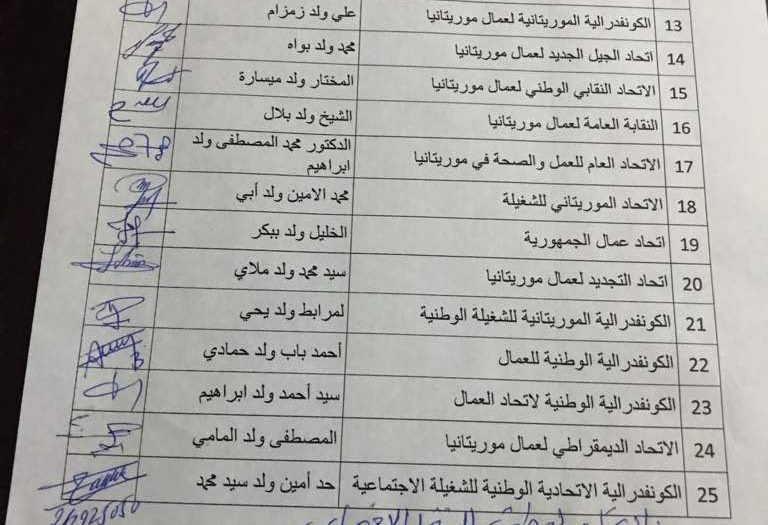 13 الكونفدرالية الموريتانية لعمال موريتانيا علي ولد زمزام
14 اتحاد الجيل الجديد لعمال موريتانيا محمد ولد بواه
15 الاتحاد النقابي الوطني لعمال موريتانيا المختار ولد ميسارة
16 النقابة العامة لعمال موريتانيا الشيخ ولد بلال
17 الاتحاد العام للعمل والصحة في موريتانيا الدكتور محمد المصطفى ولد
ابراهيم
18 الاتحاد الموريتاني للشغيلة محمد الامين ولد أبي
19 اتحاد عمال الجمهورية الخليل ولد ببكر
20 اتحاد التجديد لعمال موريتانيا سيد محمد ولد ملاي
21 الكونفدرالية الموريتانية للشغيلة الوطنية لمرابط ولد يحي
22 الكونفدرالية الوطنية للعمال أحمد باب ولد حمادي
23 الكونفدرالية الوطنية لاتحاد العمال سيد أحمد ولد ابراهيم
24 الاتحاد الديمقراطي لعمال موريتانيا المصطفى ولد المامي
25 الكونفدرالية الاتحادية الوطنية للشغيلة الاجتماعية حد أمين ولد سيد محمد